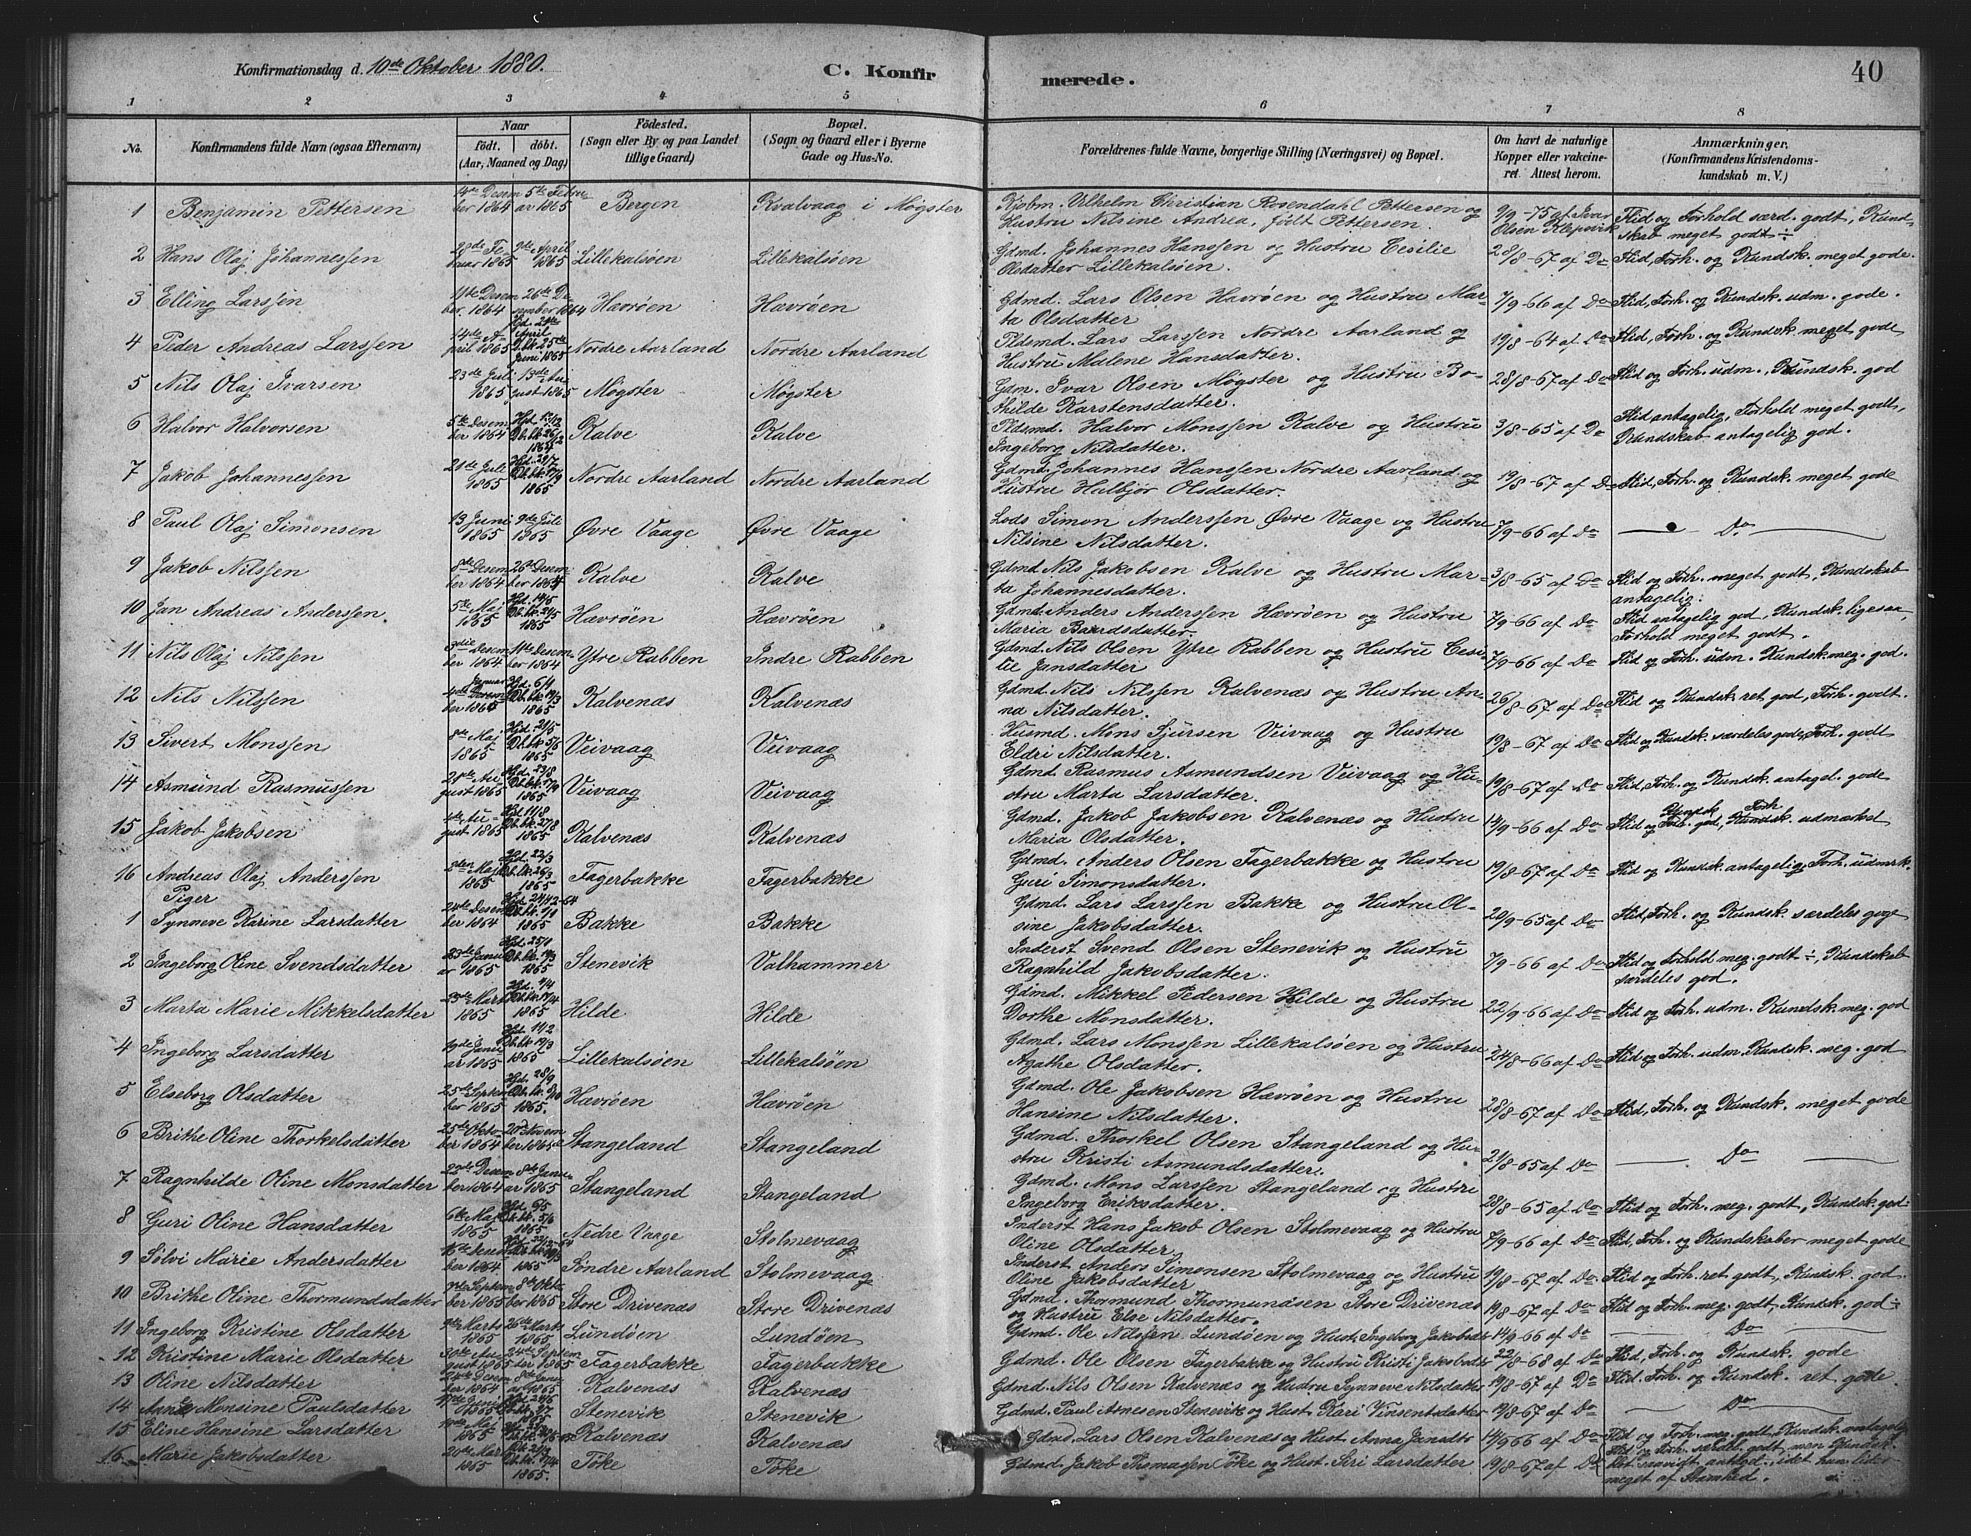 Konfirmationsdag d. 10de Oktober 1880.
C. Konfirmerede.
40
1 2 3 4 5 6 7 8
No.
Konfirmandens fulde Navn (ogsaa Efternavn)
Naar
födt. döbt.
(Aar, Maaned og Dag)
Födested.
(Sogn eller By og paa Landet
tillige Gaard)
Bopæl.
(Sogn og Gaard eller i Byerne
Gade og Hus-No.
Forældrenes fulde Navne, borgerlige Stilling (Næringsvei) og Bopæl.
Om havt de naturlige
Kopper eller vakcine-
ret. Attest herom.
Anmærkninger,
(Konfirmandens Kristendoms-
kundskab m. V.)
1 Benjamin Pettersen 14de Desember 1864 5te Februar 1865 Bergen Kvalvaag i Møgster Vilhelm Christian Rosendahl Pettersen og
Hustru Nilsine Andrea, født Pettersen. 9/9-75 af Ivar Olsen Klepsvik Flid og Forhold særd. godt, Kundskab meget godt ÷
2 Hans Olaj Johannessen 1865 9de April 1865 Lillekalsøen Lillekalsøen Gdmd. Johannes Hanssen og Hustru Cesilie
Olsdatter Lillekalsøen. 28/8-67 af Do Flid, Forh. og Kundsk. meget gode.
3 Elling Larssen 11te Desember 1864 26de Desember 1864 Havrøen Hævrøen Gdmd. Lars Olsen Hævrøen og Hustru Mar-
ta Olsdatter 7/9-66 af Do Flid, Forh. og Kundsk. udm. gode.
4 Peder Andreas Larssen 14de April 1865 Nordre Aarland Nordre Aarland Pldmd. Lars Larssen Nordre Aarland og
Hustru Malene Hansdatter. 19/8-64 af Do Flid, Forh. og Kundsk. meget gode
5 Nils Olaj Ivarsen 23de Juli 1865 13de August 1865 Møgster Møgster Gdm. Ivar Olsen Møgster og Hustru Bo-
thilde Karstensdatter. 28/8-67 af Do Flid og Forh. udm. Kundsk. god
6 Halvor Halvorsen 5te Desember 1864 Kalve Kalve Pldsmd. Halvor Monssen Kalve og Hustru
Ingeborg Nilsdatter. 3/8-65 af Do Flid antagelig, Forhold meget godt,
Kundskab antagelig god.
7 Jakob Johannessen 21de Juli 1865 Nordre Aarland Nordre Aarland Gdmd. Johannes Hanssen Nordre Aarland og
Hustru Helbjør Olsdatter. 19/8-67 af Do Flid, Forh. og Kundsk. meget gode
8 Paul Olaj Simonsen 13 Juni 1865 9de Juli 1865 Øvre Vaage Øvre Vaage Lods Simon Anderssen Øvre Vaage og Hustru
Nilsine Nilsdatter. 7/9-66 af Do Do
9 Jakob Nilssen 8de Desember 1864 26de Desember 1864 Kalve Kalve Gdmd Nils Jakobsen Kalve og Hustru Mar-
ta Johannesdatter. 3/8-65 af Do Flid og Forh. meget godt, Kundskab
antagelig.
10 Jan Andreas Anderssen 5te Maj 1865 Hævrøen Hævrøen Gdmd. Anders Anderssen Hævrøen og Hustru
Maria Baardsdatter. 7/9-66 af Do Flid antagelig god, Kundsk. ligesaa,
Forhold meget godt.
11 Nils Olaj Nilssen 3die Desember 1864 11te Desember 1864 Ytre Rabben Indre Rabben Gdmd. Nils Olsen Ytre Rabben og Hustru Cesi-
lie Jansdatter. 7/9-66 af Do Flid og Forh. udm. Kundsk. meg. god.
12 Nils Nilssen Kalvenæs Kalvenæs Gdmd. Nils Nilssen Kalvenæs og Hustru An-
na Nilsdatter. 26/8-67 af Do Flid og Kundsk. ret god, Forh. godt.
13 Sivert Monssen 8de Maj 1865 Veivaag Veivaag Husmd. Mons Sjursen Veivaag og Hustru
Eldri Nilsdatter. 19/8-67 af Do Flid og Kundsk. særdeles gode, Forh. godt
14 Asmund Rasmussen August 1865 Veivaag Veivaag Gdmd. Rasmus Asmundsen Veivaag og Hu-
stru Marta Larsdatter. 19/8-67 af Do Flid, Forh. og Kundsk. antagel. gode
15 Jakob Jakobsen August 1865 Kalvenæs Kalvenæs Gdmd. Jakob Jakobsen Kalvenæs og Hustru
Maria Olsdatter. 14/9-66 af Do Flid og Kundsk. god, Forh. udmærket
16 Andreas Olaj Anderssen 1865 Fagerbakke Fagerbakke Gdmd. Anders Olsen Fagerbakke og Hustru
Guri Simonsdatter. 19/8-67 af Do Flid og Kundsk. antagelig, Forh. udmærk.
Piger
1 Synneve Karine Larsdatter 24de Desember 1864 Bakke Bakke Gdmd. Lars Larssen Bakke og Hustru Ol-
sine Jakobsdatter. 20/9-65 af Do Flid, Forh. og Kundsk. særdeles gode
2 Ingeborg Oline Svendsdatter 23de Januar 1865 Stenevik Valhammer Inderst Svend Olsen Stenevik og Hustru
Ragnhild Jakobsdatter. 7/9-66 af Do Flid og Forhold meg. godt ÷, Kundskab
særdeles god.
3 Marta Marie Mikkelsdatter Marts 1865 Hilde Hilde Gdmd. Mikkel Pedersen Hilde og Hustru
Dorthe Monsdatter. 22/9-66 af Do Flid og Forh. udm. Kundsk. meg. god
4 Ingeborg Larsdatter 19de Januar 1865 Lillekalsøen Lillekalsøen Gdmd. Lars Monssen Lillekalsøen og Hustru
Agathe Olsdatter. 24/8-66 af Do Flid og Forh. udm. Kundsk. meg. god
5 Elseborg Olsdatter 25de September 1865 Hævrøen Hævrøen Gdmd. Ole Jakobsen Hævrøen og Hustru
Hansine Nilsdatter. 28/8-67 af Do Flid, Forh. og Kundsk. meget gode
6 Brithe Oline Thorkelsdatter 25de Oktober 1864 Stangeland Stangeland Gdmd. Thorkel Olsen Stangeland og Hu-
stru Kristi Asmundsdatter. 21/8-65 af Do Do
7 Ragnhilde Oline Monsdatter 22de Desember 1864 8de Januar 1865 Stangeland Stangeland Gdmd. Mons Larssen Stangeland og Hustru
Ingeborg Eriksdatter. 28/8-65 af Do Flid og Forh. meg. godt, Kundsk. god
8 Guri Oline Hansdatter 6te Maj 1865 Nedre Vaage Stolmevaag Inderst Hans Jakob Olsen Stolmevaag og Hustru
Oline Olsdatter 7/9-66 af Do Flid, Forh. og Kundskaber meget gode
9 Sølvi Marie Andersdatter Desember 1864 Søndre Aarland Stolmevaag Inderst Anders Simonsen Stolmevaag og Hustru
Oline Jakobsdatter 19/8-67 af Do Flid og Forh. ret godt, Kundsk. god.
10 Brithe Oline Thormundsdatter September 1865 8de Oktober 1865 Store Drivenæs Store Drivenæs Gdmd. Thormund Thormundsen Store Drivenæs
og Hustru Else Nilsdatter. 19/8-67 af Do Flid og Forh. meg. godt, Kundsk. god ÷
11 Ingeborg Kristine Olsdatter Marts 1865 26de Marts 1865 Lundøen Lundøen Gdmd. Ole Nilssen Lundøen og Hust. Ingeborg Jakobsdtr 14/9-66 af Do Do
12 Kristine Marie Olsdatter 30te August 1865 24de September 1865 Fagerbakke Fagerbakke Gdmd. Ole Olsen Fagerbakke og Hustru Kristi Jakobsdtr 22/8-68 af Do Flid, Forh. og Kundsk. gode
13 Oline Nilsdatter 24de Desember 1864 8de Januar 1865 Kalvenæs Kalvenæs Gdmd. Nils Olsen Kalvenæs og Hustru Synneve Nilsdatter 19/8-67 af Do Flid. Forh. og Kundsk. ret gode.
14 Nonsine Paulsdatter 1865 Stenevik Stenevik Gdmd. Paul Arnesen Stenevik og Hust. Kari Vinsentsdatter 19/8-67 af Do Do
15 Eline Hansine Larsdatter Maj 1865 Kalvenæs Kalvenæs Gdmd. Lars Olsen Kalvenæs og Hust. Anna Jansdtr 14/9 66 af Do Flid og Forh. meg. godt, Kundsk. antagelig
16 Marie Jakobsdatter 20de Marts 1865 Tøke Tøke Gdmd. Jakob Thomassen Tøke og Hust. Siri Larsdatter 19/8-67 af Do Flid og Forh. særdel. godt, men Kundsk.
antagel., idet hun lider
meget af Stamhed.